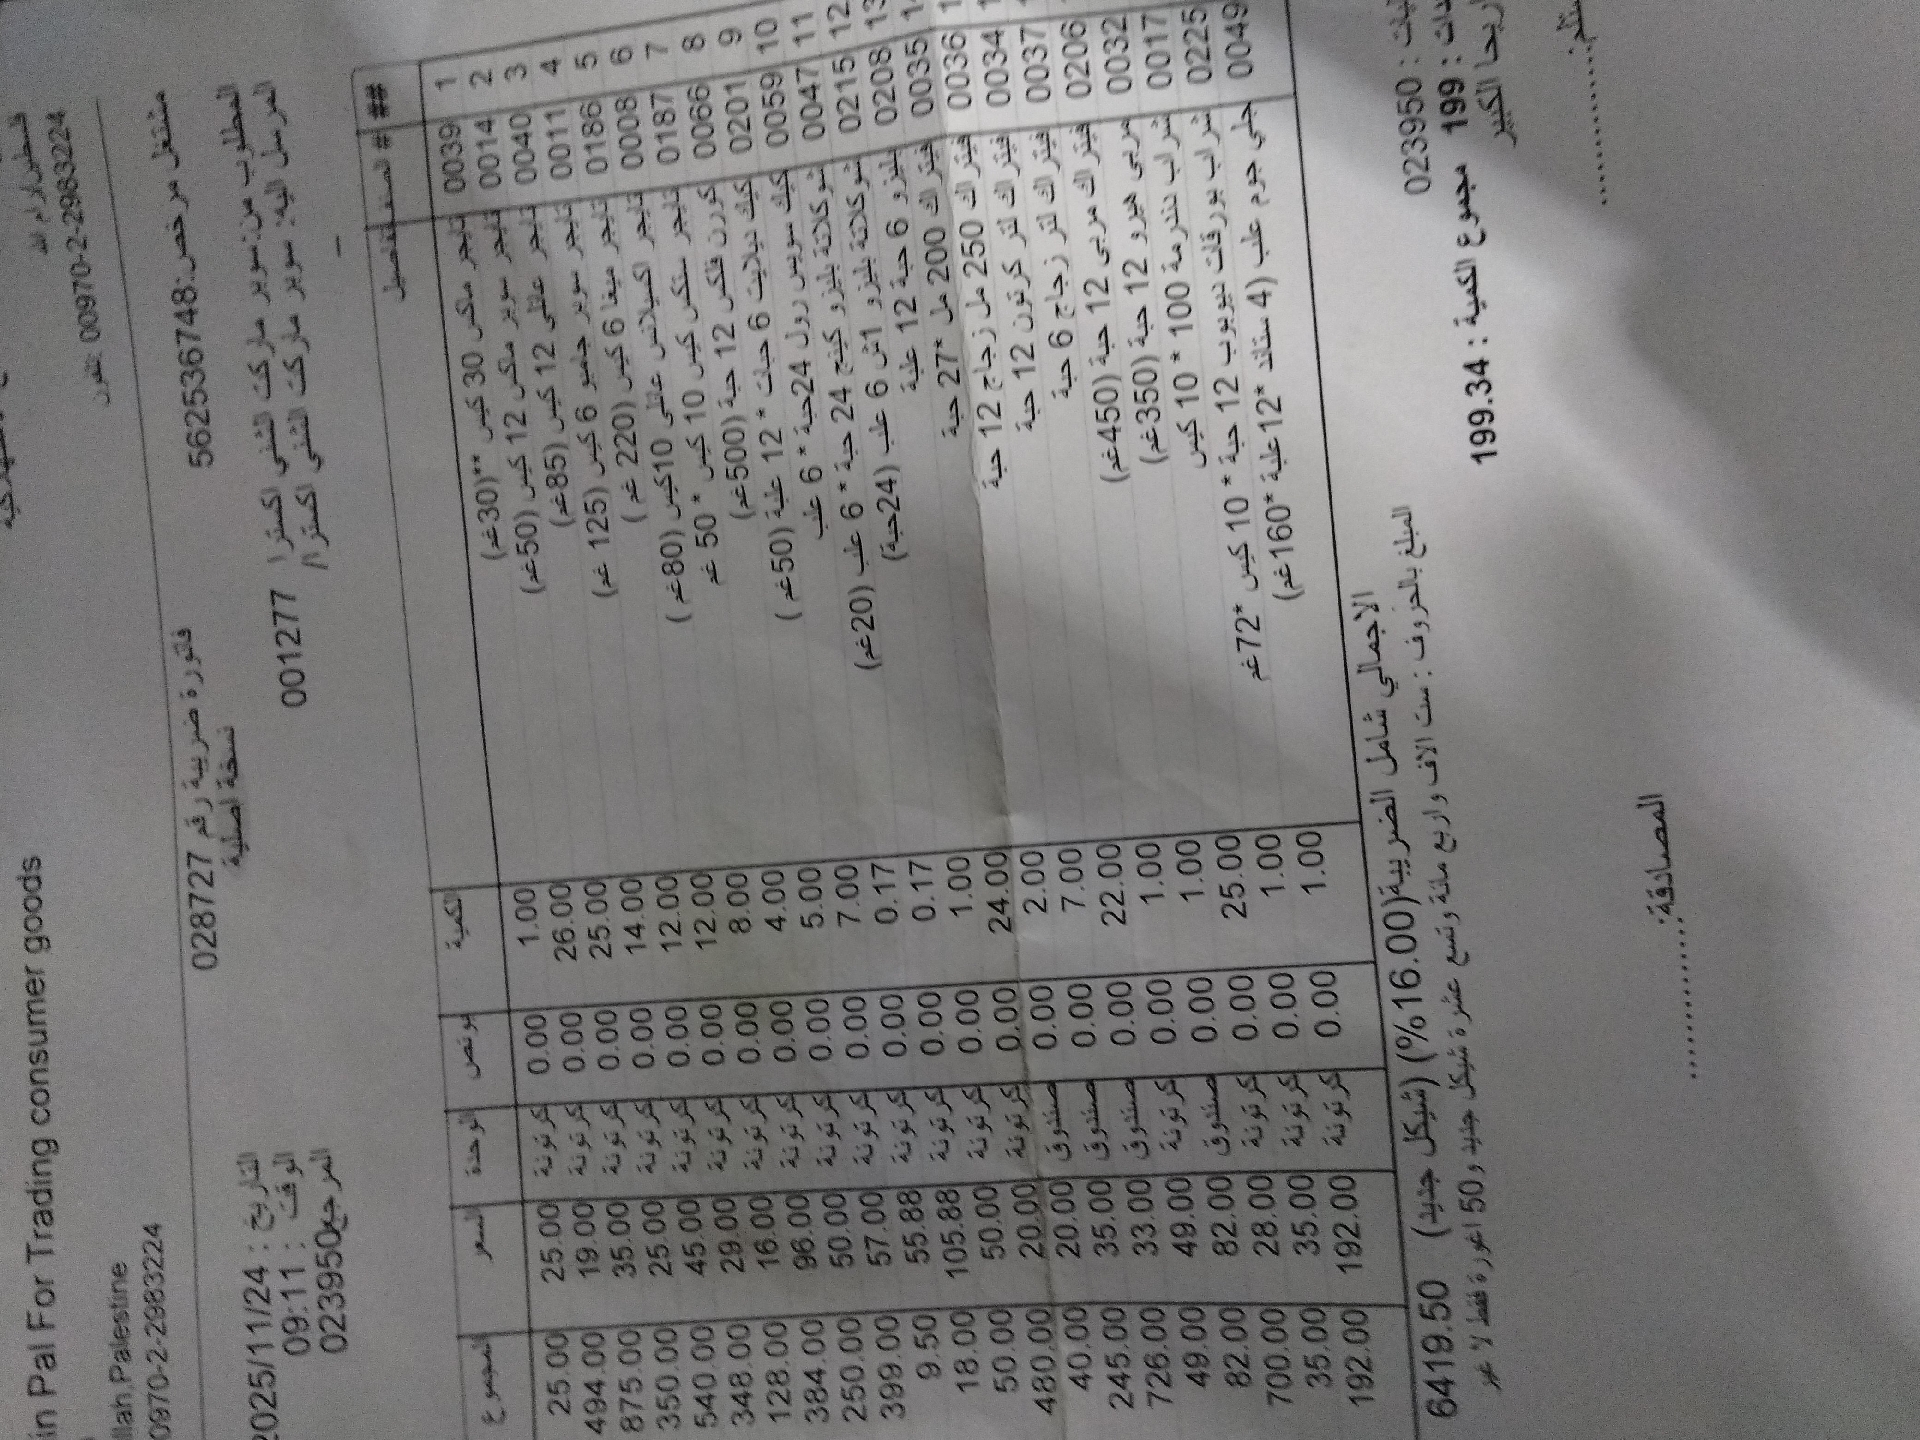 in Pal For Trading consumer goods
فلسطين/رام الله
llah,Palestine
تلفون 00970-2-2983224
0970-2-2983224
مشتغل مرخص:562536748
فاتورة ضريبية رقم 028727
نسخة اصلية
المطلوب من:سوبر ماركت الشني اكسترا 001277
المرسل اليه: سوبر ماركت الشني اكسترا/
التاريخ : 2025/11/24
الوقت : 09:11
المرجع023950
## # الصنف التفاصيل الكمية بونص الوحدة السعر المجموع
1 0039 تايجر ماكس 30 كيس **(30غم) 1.00 0.00 كرتونة 25.00 25.00
2 0014 تايجر سوبر ماكس 12 كيس (50غم) 26.00 0.00 كرتونة 19.00 494.00
3 0040 تايجر عائلي 12 كيس (85غم) 25.00 0.00 كرتونة 35.00 875.00
4 0011 تايجر سوبر جامبو 6 كيس (125 غم) 14.00 0.00 كرتونة 25.00 350.00
5 0186 تايجر ميغا 6 كيس (220 غم) 12.00 0.00 كرتونة 45.00 540.00
6 0008 تايجر اكسيلانس عائلي 10كيس (80غم) 12.00 0.00 كرتونة 29.00 348.00
7 0187 تايجر ستكس كيس 10 كيس * 50 غم 8.00 0.00 كرتونة 16.00 128.00
8 0066 كورن فلكس 12 حبة (500غم) 4.00 0.00 كرتونة 96.00 384.00
9 0201 كيك ديلايت 6 حبات * 12 علبة (50غم) 5.00 0.00 كرتونة 50.00 250.00
10 0059 كيك سويس رول 24حبة * 6 علب 7.00 0.00 كرتونة 57.00 399.00
11 0047 شوكلاتة بليزو كينج 24 حبة * 6 علب (20غم) 0.17 0.00 كرتونة 55.88 9.50
12 0215 شوكلاتة بليزو 1ش 6 علب (24حبة) 0.17 0.00 كرتونة 105.88 18.00
13 0208 بليزو 6 حبة 12 علبة 1.00 0.00 كرتونة 50.00 50.00
0035 فيتراك 200 مل *27 حبة 24.00 0.00 كرتونة 20.00 480.00
0036 فيتراك 250 مل زجاج 12 حبة 2.00 0.00 صندوق 20.00 40.00
0034 فيتراك لتر كرتون 12 حبة 7.00 0.00 صندوق 35.00 245.00
0037 فيتراك لتر زجاج 6 حبة 22.00 0.00 صندوق 33.00 726.00
0206 فيتراك مربى 12 حبة (450غم) 1.00 0.00 كرتونة 49.00 49.00
0032 مربى هيرو 12 حبة (350غم) 1.00 0.00 صندوق 82.00 82.00
0017 شراب تندرمة 100 * 10 كيس 25.00 0.00 كرتونة 28.00 700.00
0225 شراب بورقات تيوبوب 12 حبة * 10 كيس *72غم 1.00 0.00 كرتونة 35.00 35.00
0049 جلي جوم علب (4 ستاند *12علبة *160غم) 1.00 0.00 كرتونة 192.00 192.00
الاجمالي شامل الضريبية(16.00%) (شيكل جديد) 6419.50
المبلغ بالحروف : ست الاف واربع مائة وتسع عشرة شيكل جديد و50 اغورة فقط لا غير
: 023950
: 199 مجموع الكمية : 199.34
اريحا الكبير
المصادقة:..............